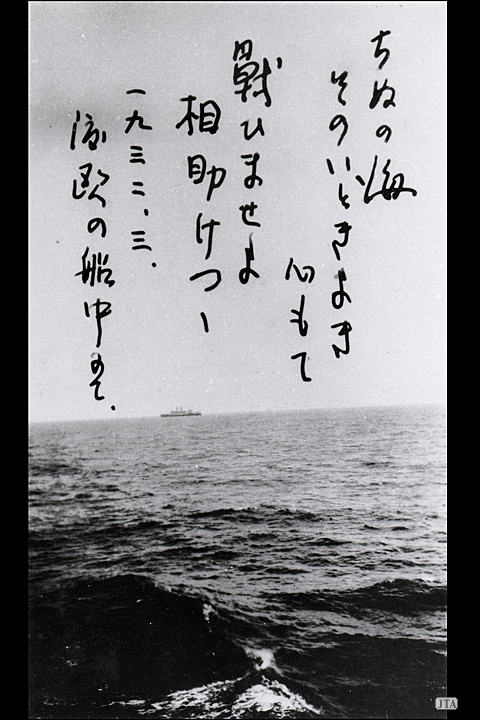 ちぬの海
そのいときよき
心もて
戦ひませよ
相助けつゝ
一九三二、三、
渡欧の船中にて.
JTA